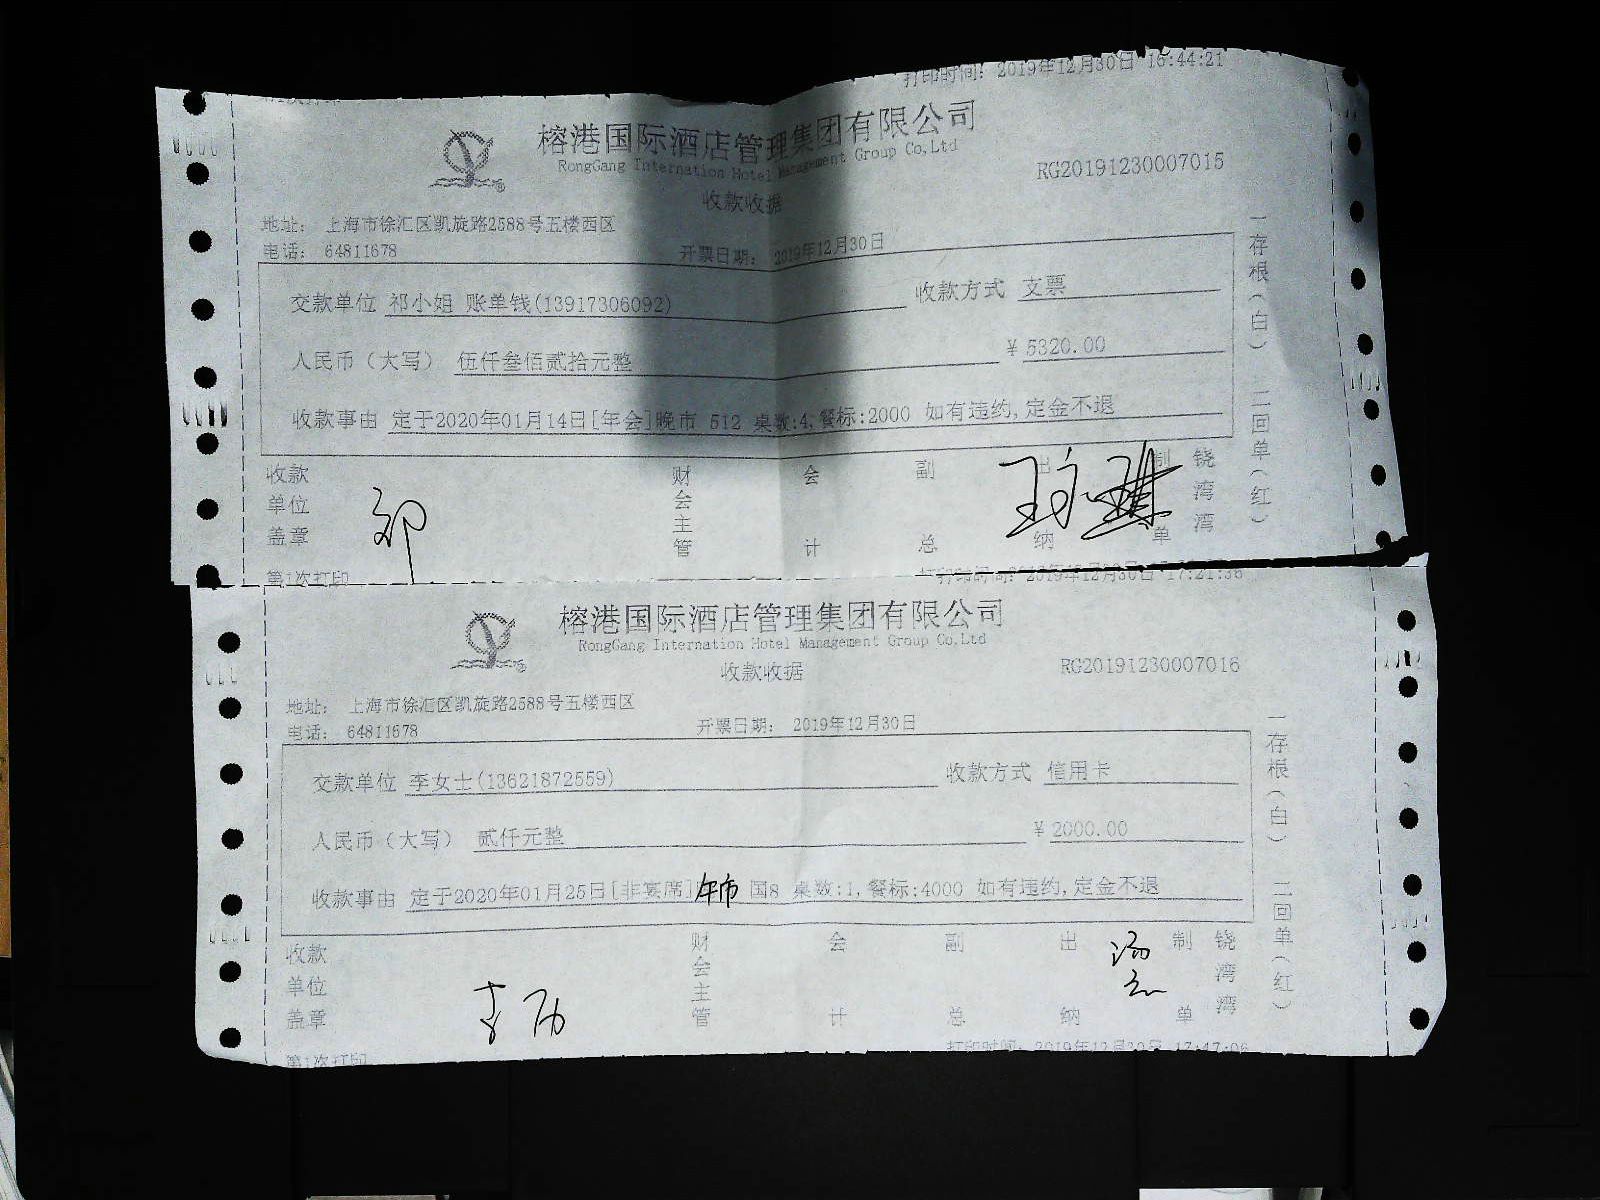 打印时间: 2019年12月30日 16:44:21
榕港国际酒店管理集团有限公司
RongGang Internation Hotel Management Group Co,Ltd
RG20191230007015
收款收据
地址: 上海市徐汇区凯旋路2588号五楼西区
电话: 64811678
开票日期: 2019年12月30日
交款单位 祁小姐 账单钱(13917306092)
收款方式 支票
人民币（大写） 伍仟叁佰贰拾元整
¥ 5320.00
收款事由 定于2020年01月14日[年会]晚市 512 桌数:4,餐标:2000 如有违约,定金不退
一存根(白) 二回单(红)
收款单位盖章
财会主管
会计
副总
出纳
制单
饶湾湾
第1次打印
打印时间: 2019年12月30日 17:21:36
榕港国际酒店管理集团有限公司
RongGang Internation Hotel Management Group Co,Ltd
收款收据
RG20191230007016
地址: 上海市徐汇区凯旋路2588号五楼西区
电话: 64811678
开票日期: 2019年12月30日
交款单位 李女士(13621872559)
收款方式 信用卡
人民币（大写） 贰仟元整
¥ 2000.00
收款事由 定于2020年01月25日[非宴席]午市 国8 桌数:1,餐标:4000 如有违约,定金不退
一存根(白) 二回单(红)
收款单位盖章
财会主管
会计
副总
出纳
制单
饶湾湾
第1次打印
打印时间: 2019年12月30日 17:47:06